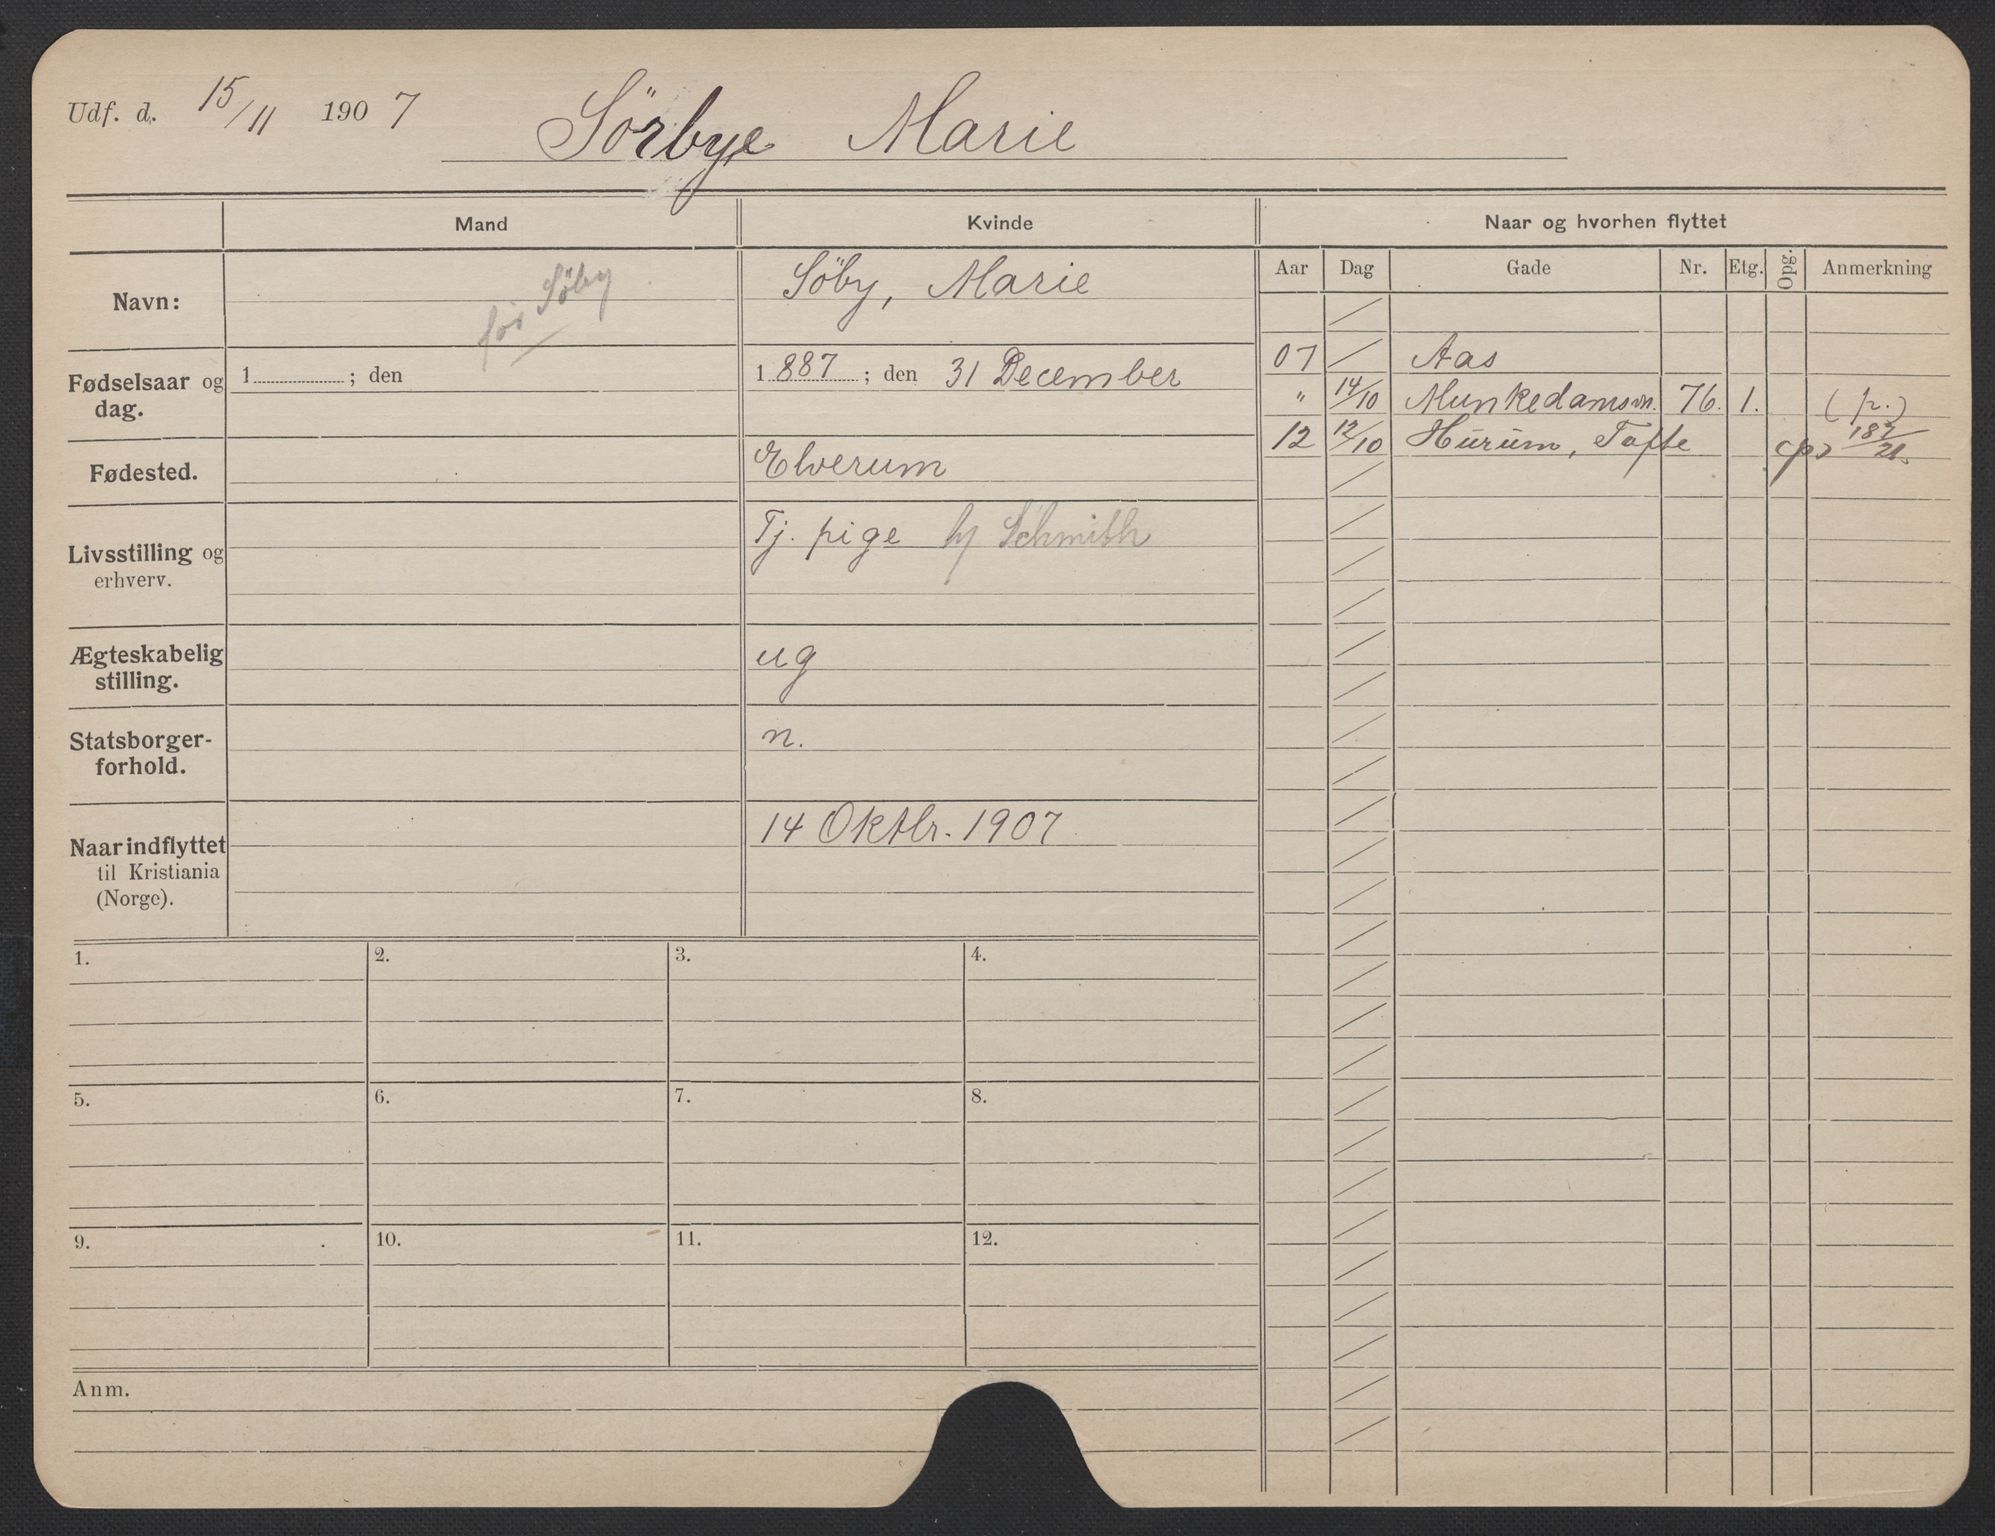 Udf. d. 15/11 1907 Sörbye Marie
Mand Kvinde Naar og hvorhen flyttet
Aar Dag Gade Nr. Etg. Opg. Anmerkning
Navn: för Söby Söby, Marie
Fødselsaar og dag. 1 ; den 1887 ; den 31 December
Fødested. Elverum
Livsstilling og erhverv. Tj. pige h/ Schmith
Ægteskabelig stilling. ug
Statsborger-
forhold. n.
Naar indflyttet til Kristiania (Norge). 14 Oktbr. 1907
07 Aas
" 14/10 Munkedamsvn. 76. 1. (p.)
12 12/10 Hurum, Tofte (p) 187/21.
1. 2. 3. 4.
5. 6. 7. 8.
9. 10. 11. 12.
Anm.